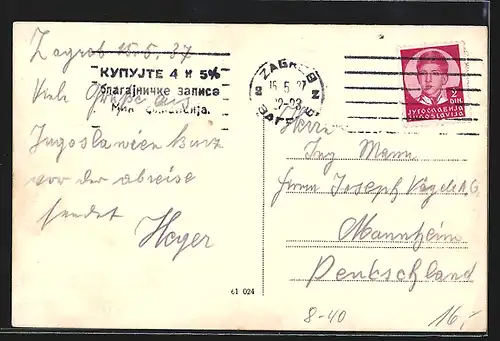 Zagreb 15.5.37
КУПУЈТЕ 4 И 5%
благајничке записе
Мин. финансија.
Viele Grüße aus
Jugoslawien kurz
vor der abreise
sendet
Heger
61 024
ZAGREB 2
15.5.37
22-23
ЗАГРЕБ
2
DIN
ЈУГОСЛАВИЈА
JUGOSLAVIJA
Herrn
Ing Mann
Firma Joseph Vögele A.G.
Mannheim
Deutschland
8-40
16,-